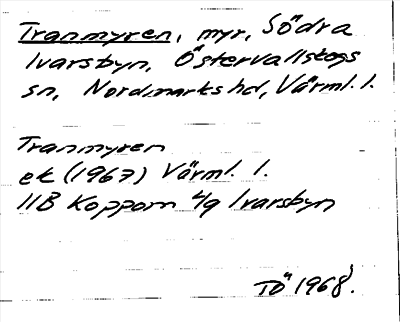 Tranmyren, myr, Södra
Ivarsbyn, Östervallskogs
sn, Nordmarks hd, Värml. l.
Tranmyren
ek (1967) Värml. l.
11B Koppom 4/g Ivarsbyn
TÖ 1968.